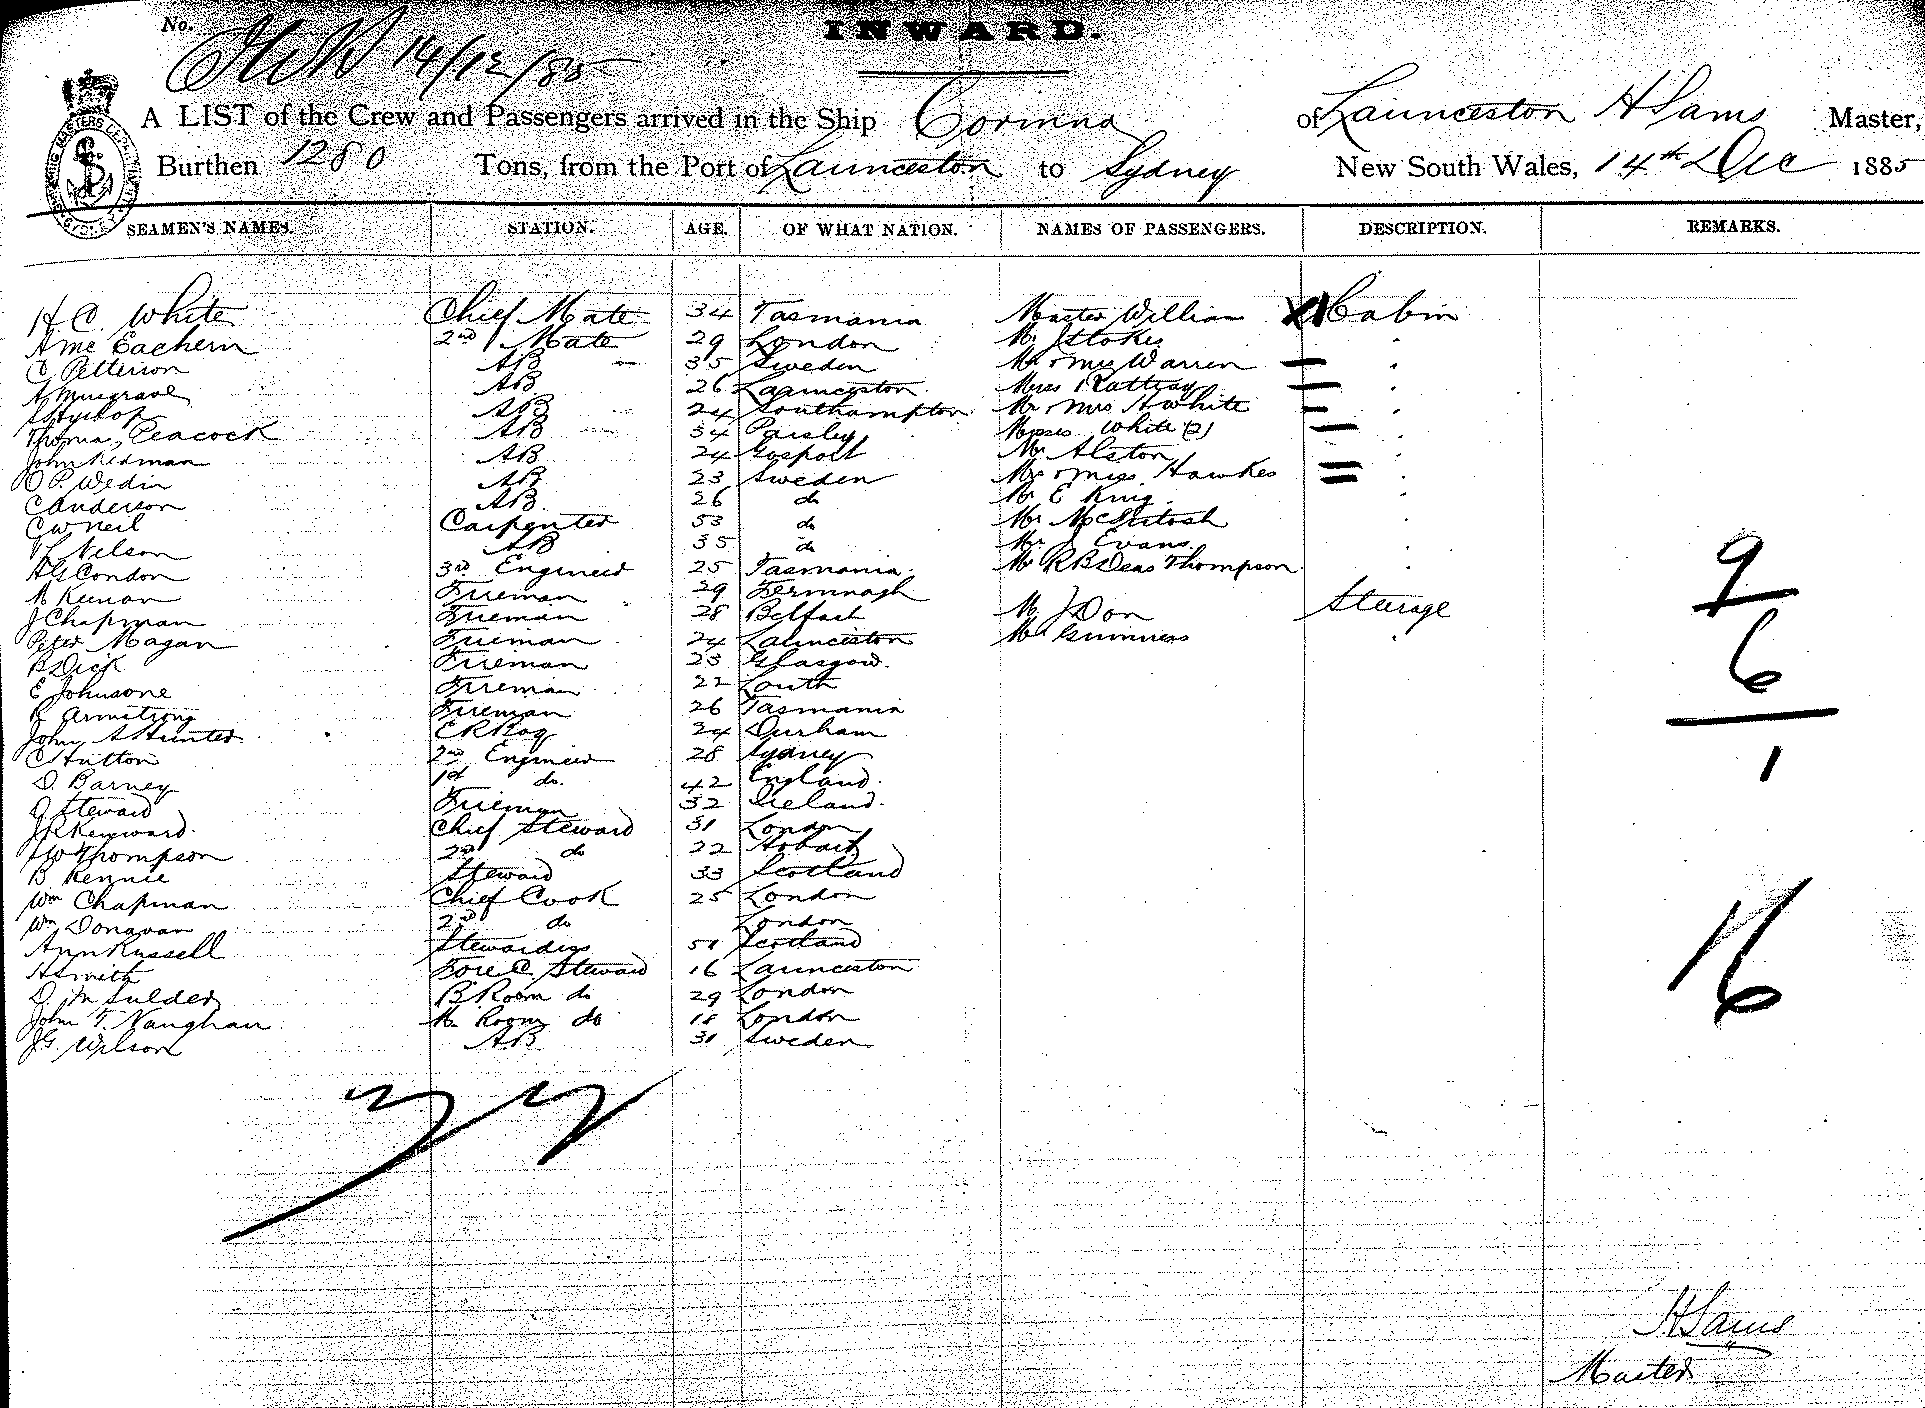 INWARD.
No.
14/12/85
A LIST of the Crew and Passengers arrived in the Ship Corinna of Launceston H Sams Master,
Burthen 1280 Tons, from the Port of Launceston to Sydney New South Wales, 14th Dec 1885
SEAMEN'S NAMES. STATION. AGE. OF WHAT NATION. NAMES OF PASSENGERS. DESCRIPTION. REMARKS.
H.C. White Chief Mate 34 Tasmania Master William Cabin
A Mc Eachern 2nd Mate 29 London Mr J Stokes "
C Petterson AB 35 Sweden Mr & Mrs Warren "
A Musgrave AB 26 Launceston Misses Rattray "
Hyslop AB 24 Southampton Mr & Mrs H White "
Thomas Peacock AB 34 Paisley Misses White (2) "
John Redman AB 24 Gosport Mr Alston "
O P. Wedin AB 23 Sweden Mr & Miss Hawkes "
C Anderson AB 26 do Mr E King "
C W Neil Carpenter 53 do Mr McIntosh "
L Nelson AB 35 do Mr J Evans "
H G Condon 3rd Engineer 25 Tasmania Mr R B Deas Thompson "
M Keenan Fireman 29 Fermnagh
J Chapman Fireman 28 Belfast Mr J Don Steerage
Peter Magan Fireman 24 Launceston Mr "
Dick Fireman 23 Glasgow
E Johnsone Fireman 22 Louth
R Armstrong Fireman 26 Tasmania
John S Hunter 24 Durham
C Hutton 2nd Engineer 28 Sydney
D. Barney 1st do. 42 England
J Steward Fireman 32 Ireland
J R Kenward Chief Steward 31 London
J W Thompson 2nd do 22 Hobart
B Rennie Steward 33 Scotland
Wm Chapman Chief Cook 25 London
Wm Donovan 2nd do London
Ann Russell Stewardess 51 Scotland
H Smith Fore C. Steward 16 Launceston
D. M B. Room do 29 London
John T. Naughan M. Room do 18 London
J.G. Wilson AB 31 Sweden
9
6
1
16
H Sams
Master